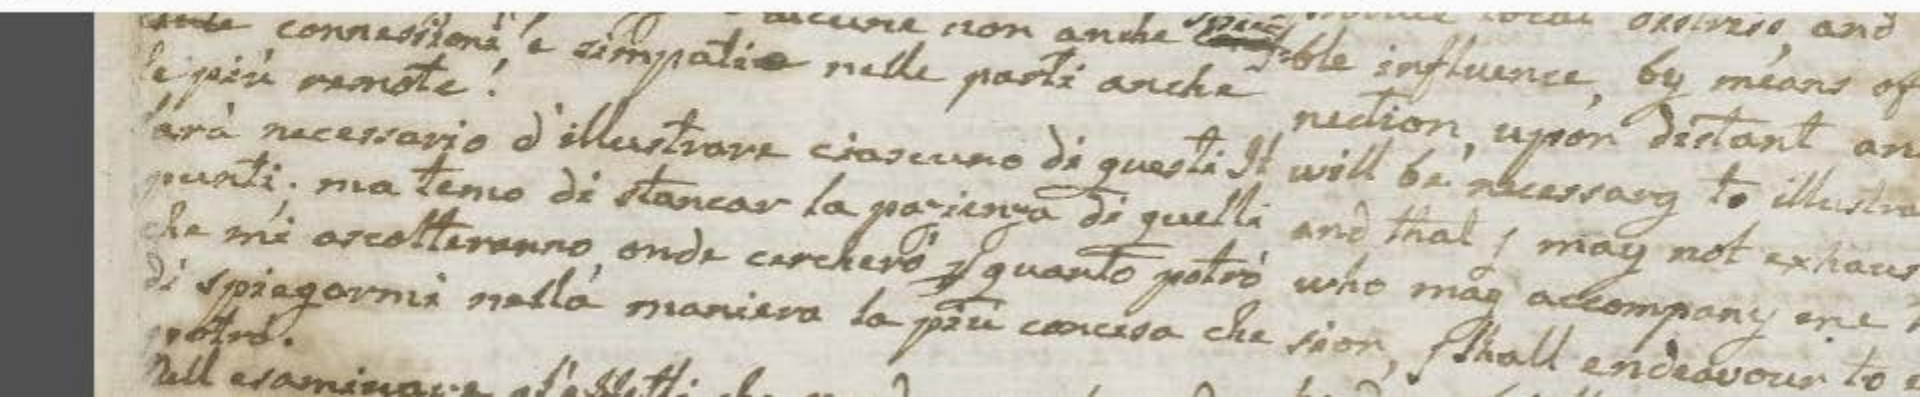 alcune non anche
connessioni, e simpatie nelle parti anche
le più remote!
arà necessario d'illustrare ciascuno di questi
punti; ma temo di stancar la pazienza di quelli
che mi ascolteranno, onde cercherò quanto potrò
di spiegarmi nella maniera la più concesa che
potrò.
Nell esaminare gl'effetti che
local distress, and
ble influence, by means of
nection, upon distant an
It will be necessary to illustra
and that I may not exhaus
who may accompany me
sion, shall endeavour to e